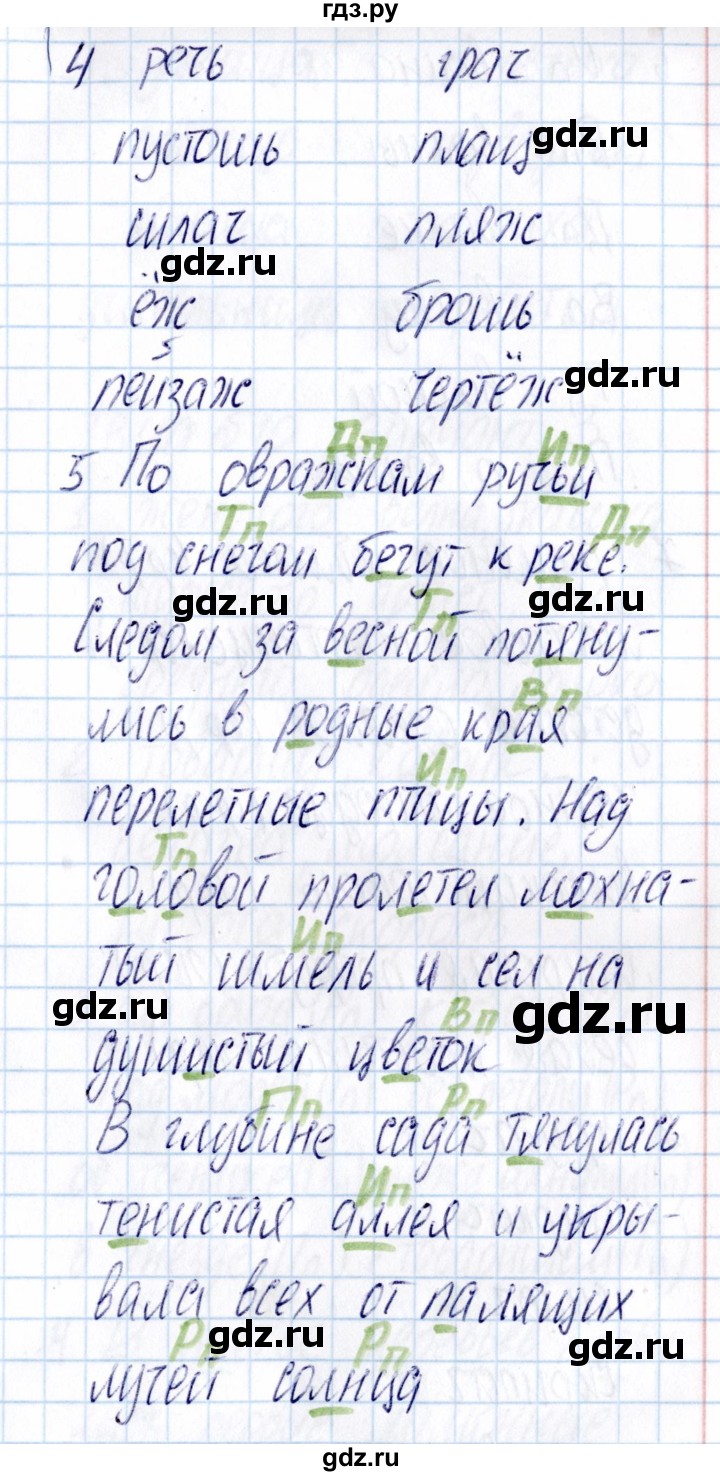 гдз.ру
4 речь грач
пустошь плащ gdz.ru
силач пляж
gdz.ru
ёж брошь
5
пейзаж чертёж gdz.ru
Дп Ип
5 По овражкам ручьи
Тп Дп
под снегом бегут к реке.
gdz.ru Тп gdz.ru
Следом за весной потяну-
Вп
лись в родные края
Ип
перелетные птицы. Над
Тп
головой пролетел мохна-
Ип
тый шмель и сел на
gdz.ru Вп gdz.ru
душистый цветок
Пп Рп
В глубине сада тянулась
Ип
тенистая аллея и укры-
вала всех от палящих
Рп gdz.ru Рп gdz.ru
лучей солнца
gdz.ru